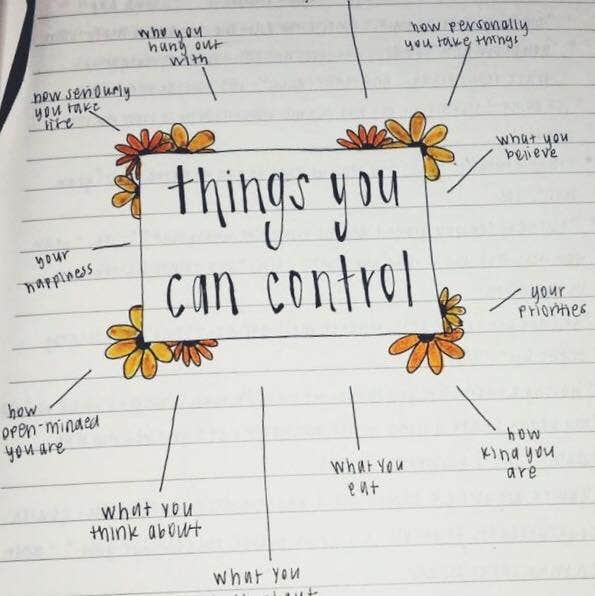 who you
hung out
with
how personally
you take things
how seriously
you take
life
what you
believe
things you
can control
your
happiness
your
priorities
how
open-minded
you are
how
kind you
are
what you
eat
what you
think about
what you